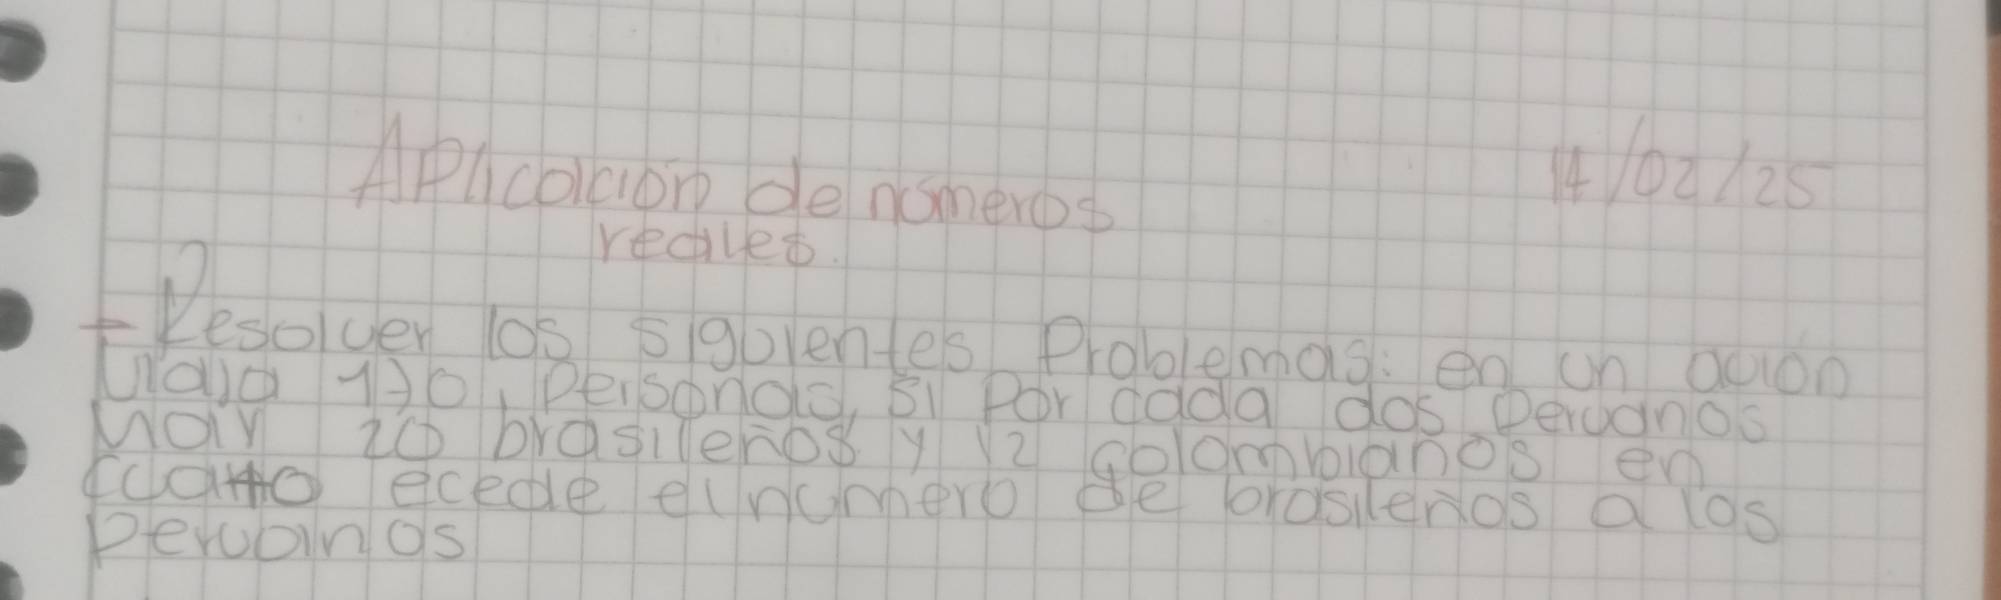 Aplicación de números
14/02/25
reales.
- Resolver los siguientes Problemas: en un avión
viaja 170, personas, si Por cada dos peruanos
hay 20 brasileños y 12 colombianos en
cuanto ecede el numero de brasileños a los
peruanos